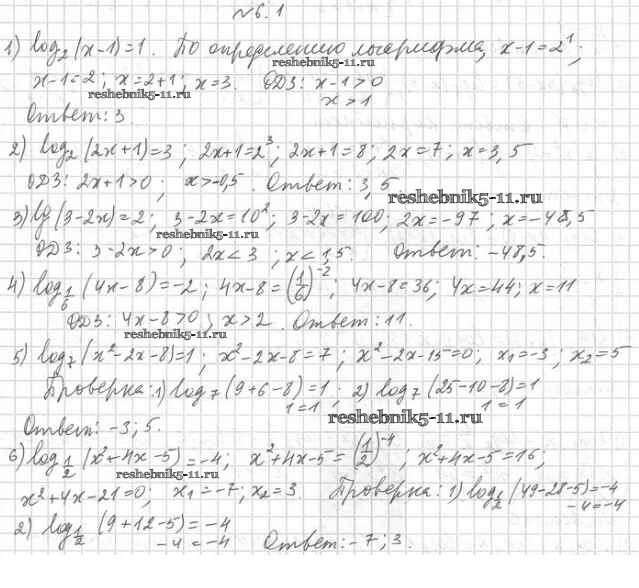 №6.1
1) log₂(x-1)=1. По определению логарифма, x-1=2¹;
reshebnik5-11.ru
x-1=2; x=2+1; x=3. ОДЗ: x-1>0
reshebnik5-11.ru
x>1
Ответ: 3.
2) log₂(2x+1)=3; 2x+1=2³; 2x+1=8; 2x=7; x=3,5
ОДЗ: 2x+1>0; x>-0,5. Ответ: 3,5
reshebnik5-11.ru
3) lg(3-2x)=2; 3-2x=10²; 3-2x=100; 2x=-97; x=-48,5
reshebnik5-11.ru
ОДЗ: 3-2x>0; 2x<3; x<1,5. Ответ: -48,5.
4) log_{1/6}(4x-8)=-2; 4x-8=(1/6)⁻²; 4x-8=36; 4x=44; x=11
ОДЗ: 4x-8>0; x>2. Ответ: 11.
reshebnik5-11.ru
5) log₇(x²-2x-8)=1; x²-2x-8=7; x²-2x-15=0; x₁=-3; x₂=5
Проверка: 1) log₇(9+6-8)=1; 2) log₇(25-10-8)=1
1=1 1=1
reshebnik5-11.ru
Ответ: -3; 5.
6) log_{1/2}(x²+4x-5)=-4; x²+4x-5=(1/2)⁻⁴; x²+4x-5=16;
reshebnik5-11.ru
x²+4x-21=0; x₁=-7; x₂=3. Проверка: 1) log_{1/2}(49-28-5)=-4
-4=-4
2) log_{1/2}(9+12-5)=-4
-4=-4 Ответ: -7; 3.